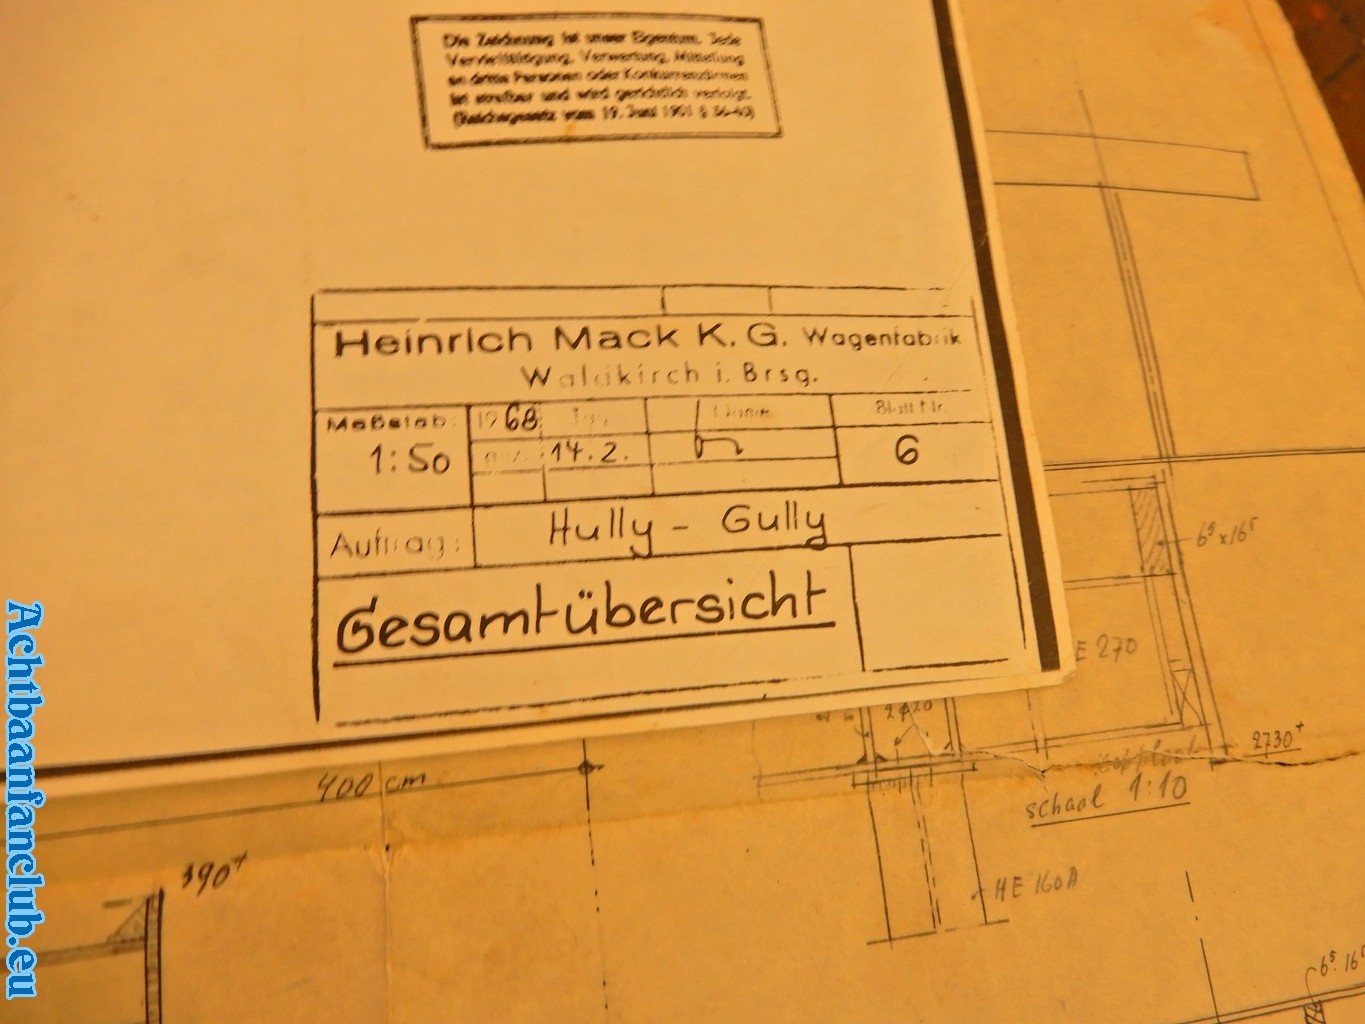 Die Zeichnung ist unser Eigentum. Jede
Vervielfältigung, Verwertung, Mitteilung
an dritte Personen oder Konkurrenzfirmen
ist strafbar und wird gerichtlich verfolgt.
(Reichsgesetz vom 19. Juni 1901 § 36-40)
Heinrich Mack K. G. Wagenfabrik
Waldkirch i. Brsg.
Maßstab: 1968 Tag Name Blatt Nr.
1:50 14.2. 6
Auftrag: Hully - Gully
Gesamtübersicht
6⁵ x 16⁵
E 270
2ϕ20
2730+
schaal 1:10
400 cm
190+
HE 160A
6⁵ 16⁵
Achtbaanfanclub.eu